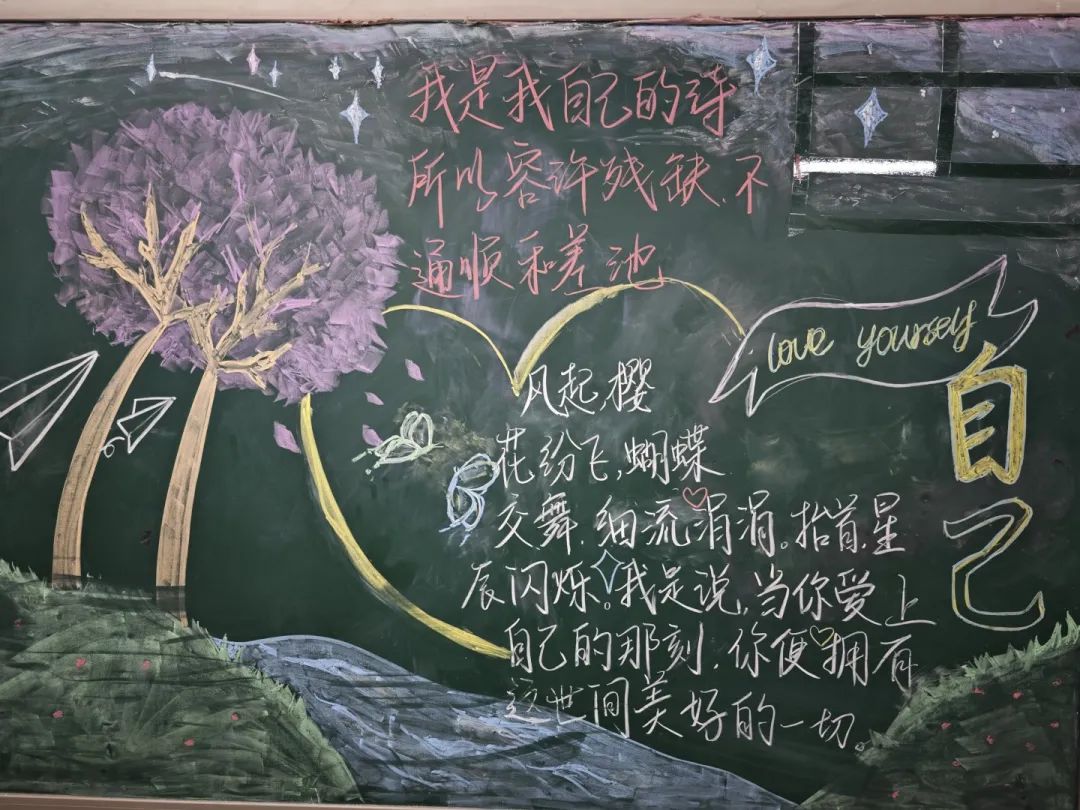 我是我自己的诗
所以容许残缺、不
通顺和差池
love yourself
自己
风起,樱
花纷飞,蝴蝶
交舞.细流涓涓。抬首,星
辰闪烁。我是说,当你爱上
自己的那刻.你便拥有
这世间美好的一切。